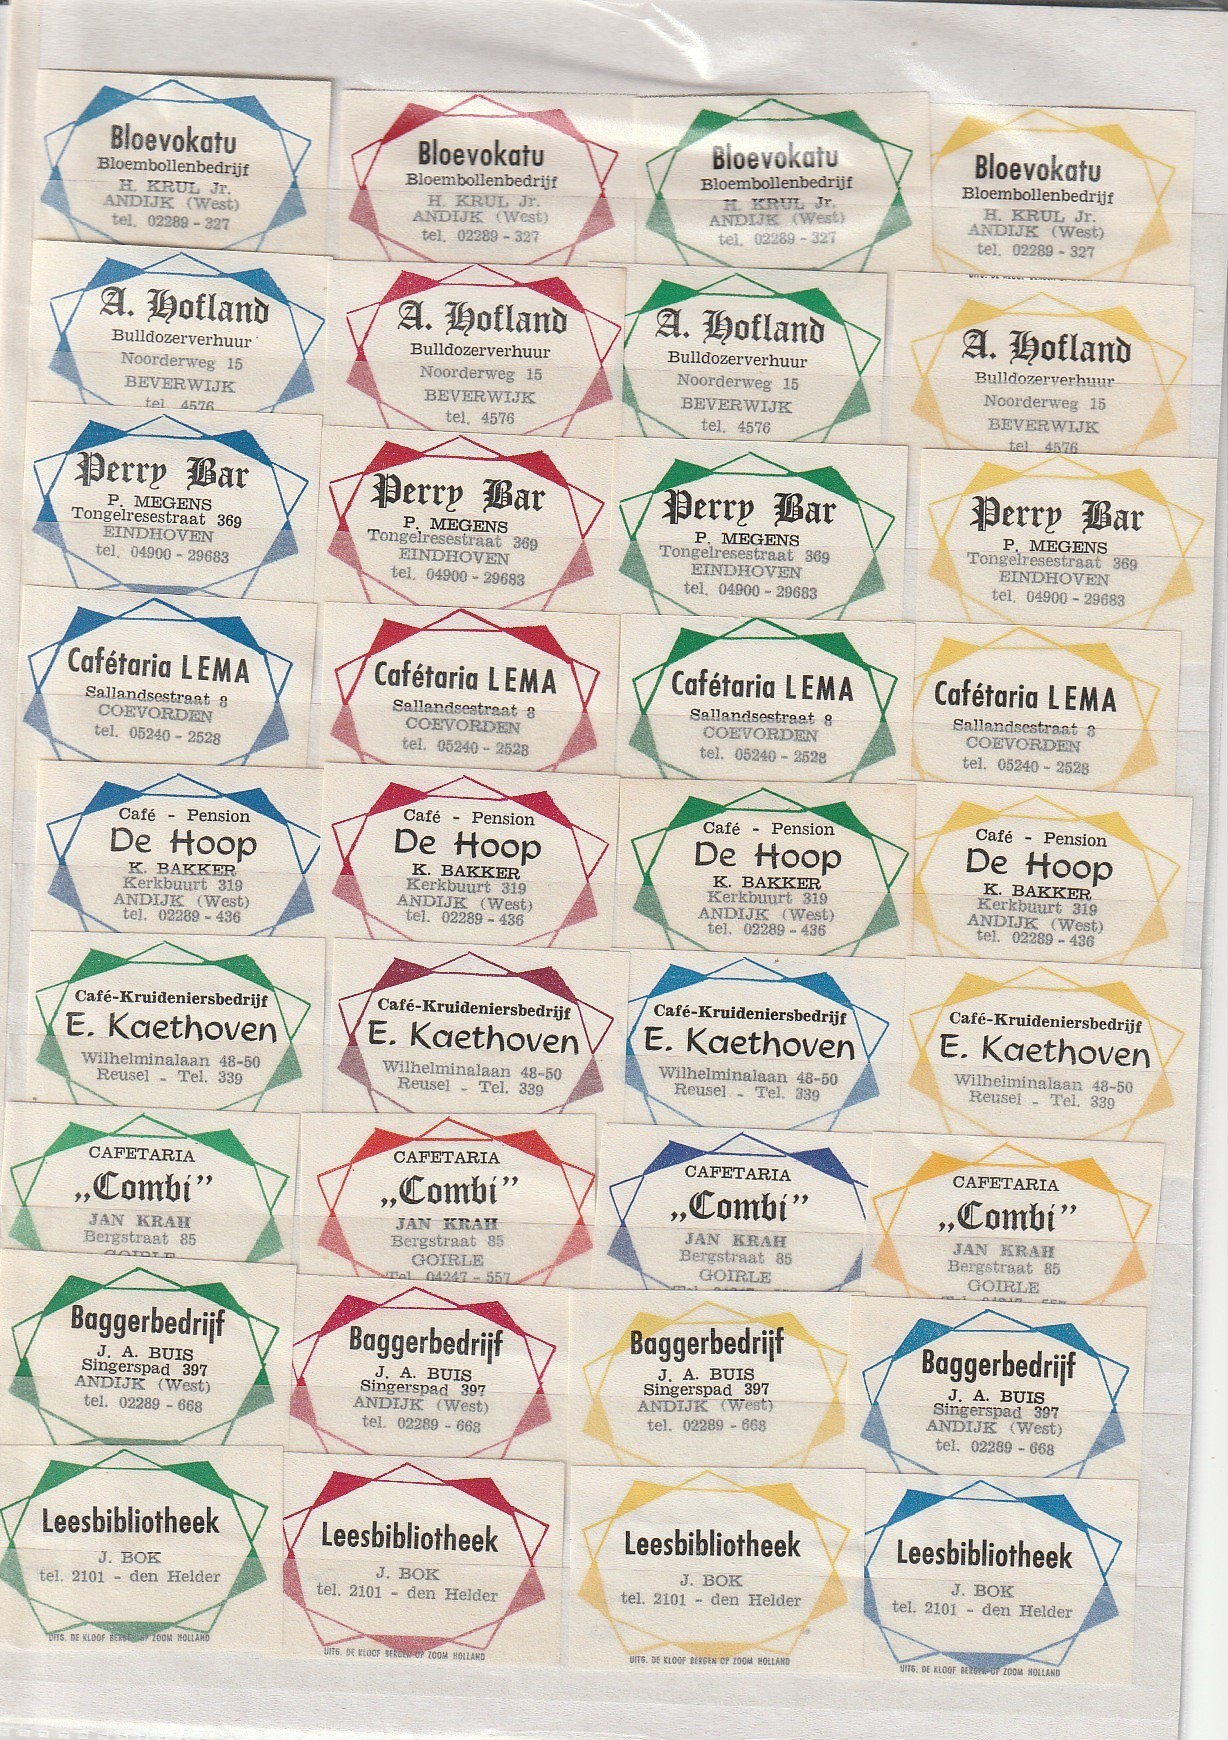 Bloevokatu
Bloembollenbedrijf
H. KRUL Jr.
ANDIJK (West)
tel. 02289 - 327
Bloevokatu
Bloembollenbedrijf
H. KRUL Jr.
ANDIJK (West)
tel. 02289 - 327
Bloevokatu
Bloembollenbedrijf
H. KRUL Jr.
ANDIJK (West)
tel. 02289 - 327
Bloevokatu
Bloembollenbedrijf
H. KRUL Jr.
ANDIJK (West)
tel. 02289 - 327
A. Hofland
Bulldozerverhuur
Noorderweg 15
BEVERWIJK
tel. 4576
A. Hofland
Bulldozerverhuur
Noorderweg 15
BEVERWIJK
tel. 4576
A. Hofland
Bulldozerverhuur
Noorderweg 15
BEVERWIJK
tel. 4576
A. Hofland
Bulldozerverhuur
Noorderweg 15
BEVERWIJK
tel. 4576
Perry Bar
P. MEGENS
Tongelresestraat 369
EINDHOVEN
tel. 04900 - 29683
Perry Bar
P. MEGENS
Tongelresestraat 369
EINDHOVEN
tel. 04900 - 29683
Perry Bar
P. MEGENS
Tongelresestraat 369
EINDHOVEN
tel. 04900 - 29683
Perry Bar
P. MEGENS
Tongelresestraat 369
EINDHOVEN
tel. 04900 - 29683
Cafétaria LEMA
Sallandsestraat 8
COEVORDEN
tel. 05240 - 2528
Cafétaria LEMA
Sallandsestraat 8
COEVORDEN
tel. 05240 - 2528
Cafétaria LEMA
Sallandsestraat 8
COEVORDEN
tel. 05240 - 2528
Cafétaria LEMA
Sallandsestraat 8
COEVORDEN
tel. 05240 - 2528
Café - Pension
De Hoop
K. BAKKER
Kerkbuurt 319
ANDIJK (West)
tel. 02289 - 436
Café - Pension
De Hoop
K. BAKKER
Kerkbuurt 319
ANDIJK (West)
tel. 02289 - 436
Café - Pension
De Hoop
K. BAKKER
Kerkbuurt 319
ANDIJK (West)
tel. 02289 - 436
Café - Pension
De Hoop
K. BAKKER
Kerkbuurt 319
ANDIJK (West)
tel. 02289 - 436
Café-Kruideniersbedrijf
E. Kaethoven
Wilhelminalaan 48-50
Reusel - Tel. 339
Café-Kruideniersbedrijf
E. Kaethoven
Wilhelminalaan 48-50
Reusel - Tel. 339
Café-Kruideniersbedrijf
E. Kaethoven
Wilhelminalaan 48-50
Reusel - Tel. 339
Café-Kruideniersbedrijf
E. Kaethoven
Wilhelminalaan 48-50
Reusel - Tel. 339
CAFETARIA
„Combi”
JAN KRAH
Bergstraat 85
GOIRLE
CAFETARIA
„Combi”
JAN KRAH
Bergstraat 85
GOIRLE
Tel. 04247 - 557
CAFETARIA
„Combi”
JAN KRAH
Bergstraat 85
GOIRLE
CAFETARIA
„Combi”
JAN KRAH
Bergstraat 85
GOIRLE
Baggerbedrijf
J. A. BUIS
Singerspad 397
ANDIJK (West)
tel. 02289 - 668
Baggerbedrijf
J. A. BUIS
Singerspad 397
ANDIJK (West)
tel. 02289 - 668
Baggerbedrijf
J. A. BUIS
Singerspad 397
ANDIJK (West)
tel. 02289 - 668
Baggerbedrijf
J. A. BUIS
Singerspad 397
ANDIJK (West)
tel. 02289 - 668
Leesbibliotheek
J. BOK
tel. 2101 - den Helder
UITG. DE KLOOF BERGEN OP ZOOM HOLLAND
Leesbibliotheek
J. BOK
tel. 2101 - den Helder
UITG. DE KLOOF BERGEN OP ZOOM HOLLAND
Leesbibliotheek
J. BOK
tel. 2101 - den Helder
UITG. DE KLOOF BERGEN OP ZOOM HOLLAND
Leesbibliotheek
J. BOK
tel. 2101 - den Helder
UITG. DE KLOOF BERGEN OP ZOOM HOLLAND